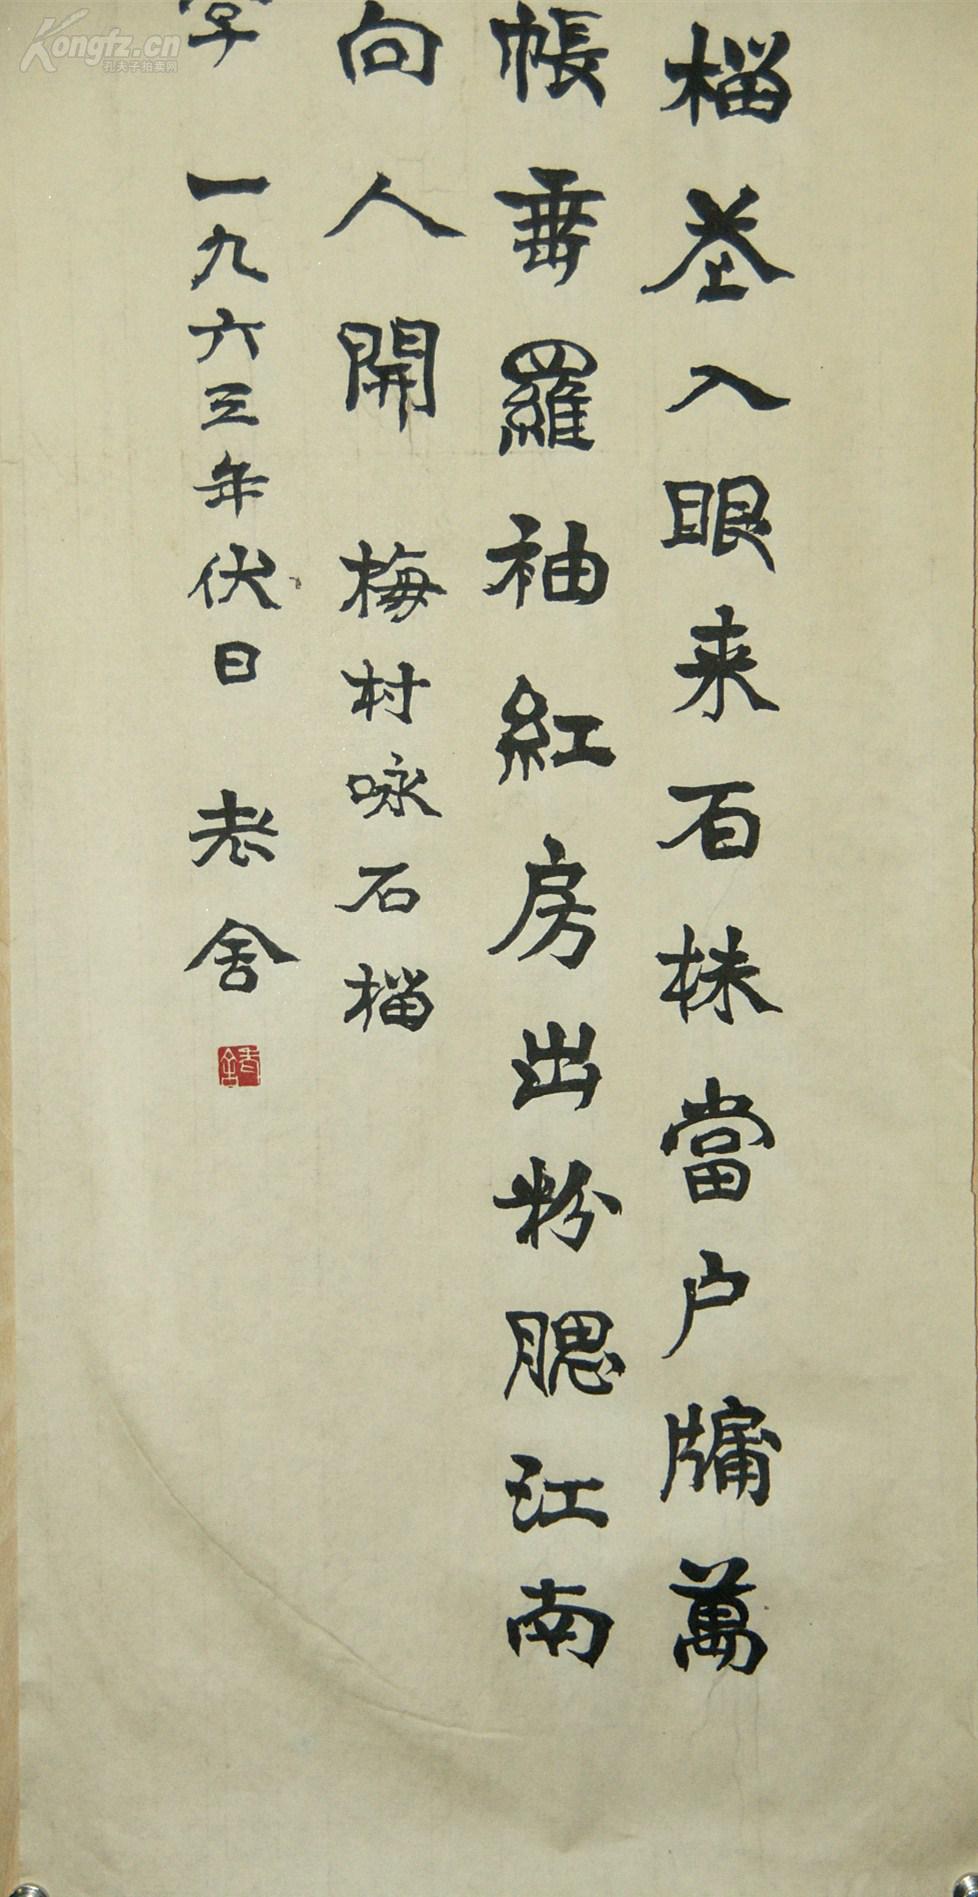 榴花入眼来百株當户牖萬
帳垂羅袖紅房出粉腮江南
向人開 梅村咏石榴
一九六三年伏日 老舍
老舍
Kongfz.cn
孔夫子拍卖网